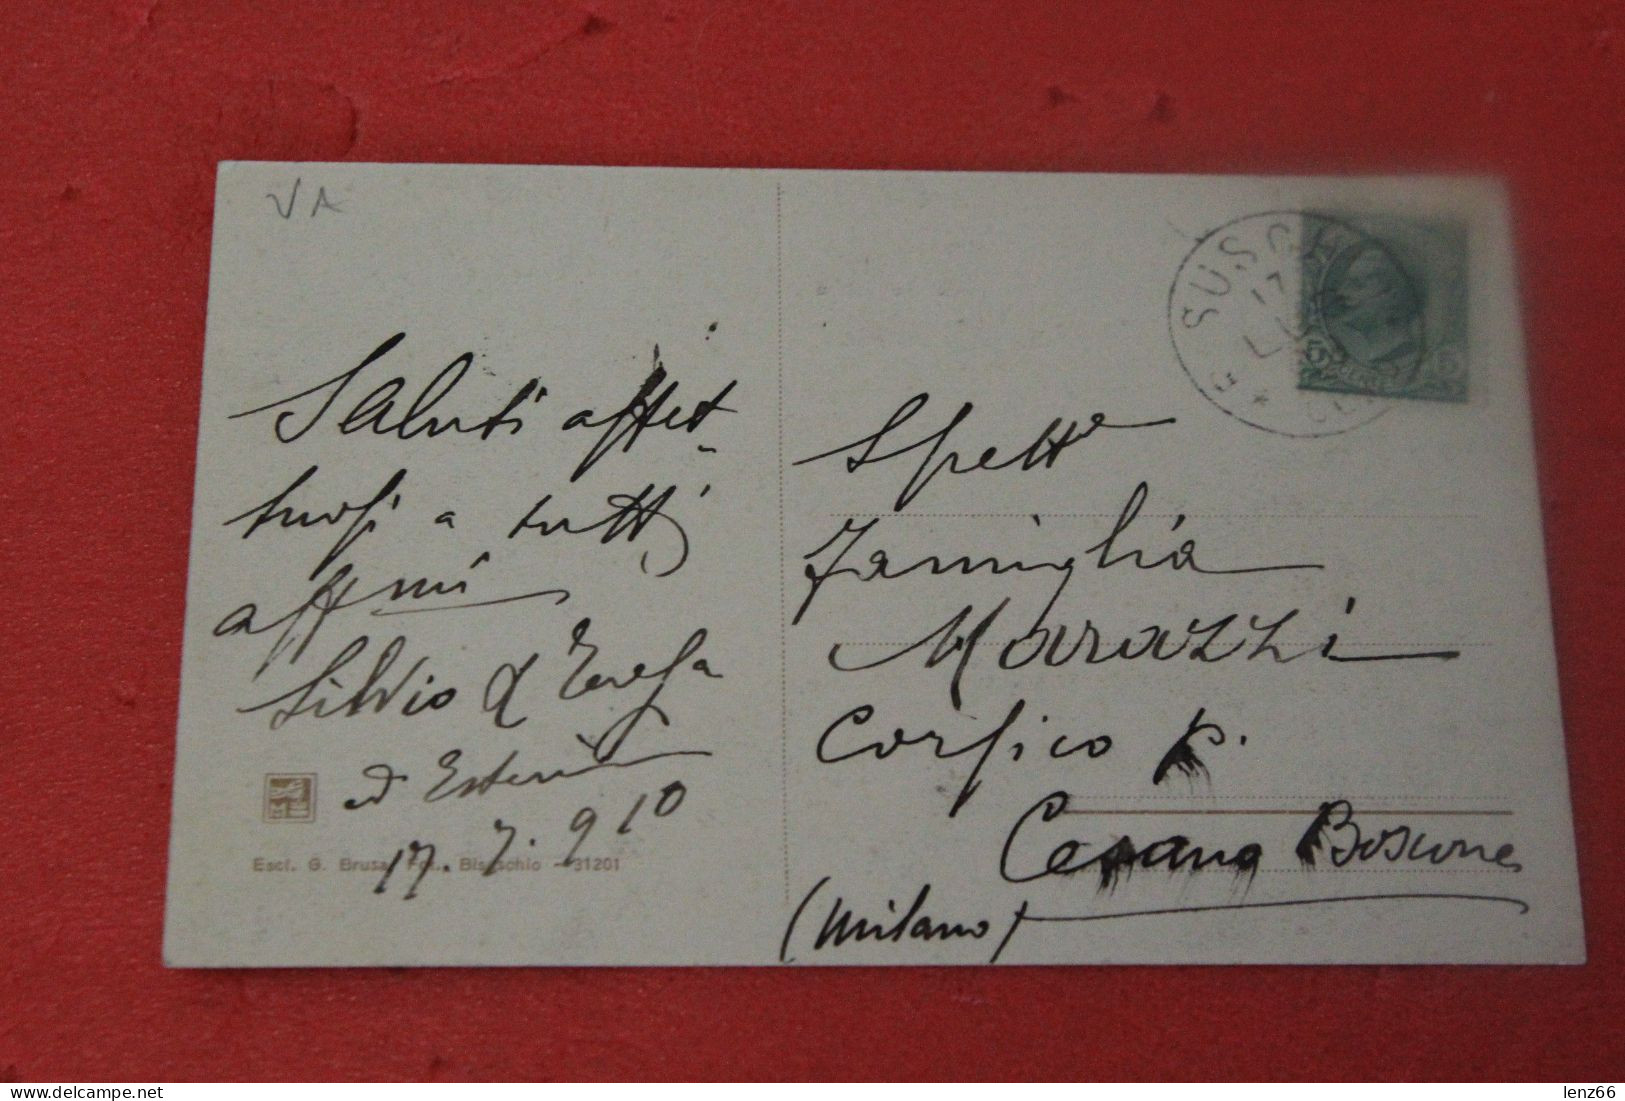 VA
Saluti affet-
tuosi a tutti
affmi
Silvio & Teresa
ed Esterina
17. 7. 910
Escl. G. Brusa, Fot., Bisuschio - 31201
BISUSCHIO
17
5 5
Spett.e
Famiglia
Marazzi
Corsico p.
Cesano Boscone
(Milano)
lenz66